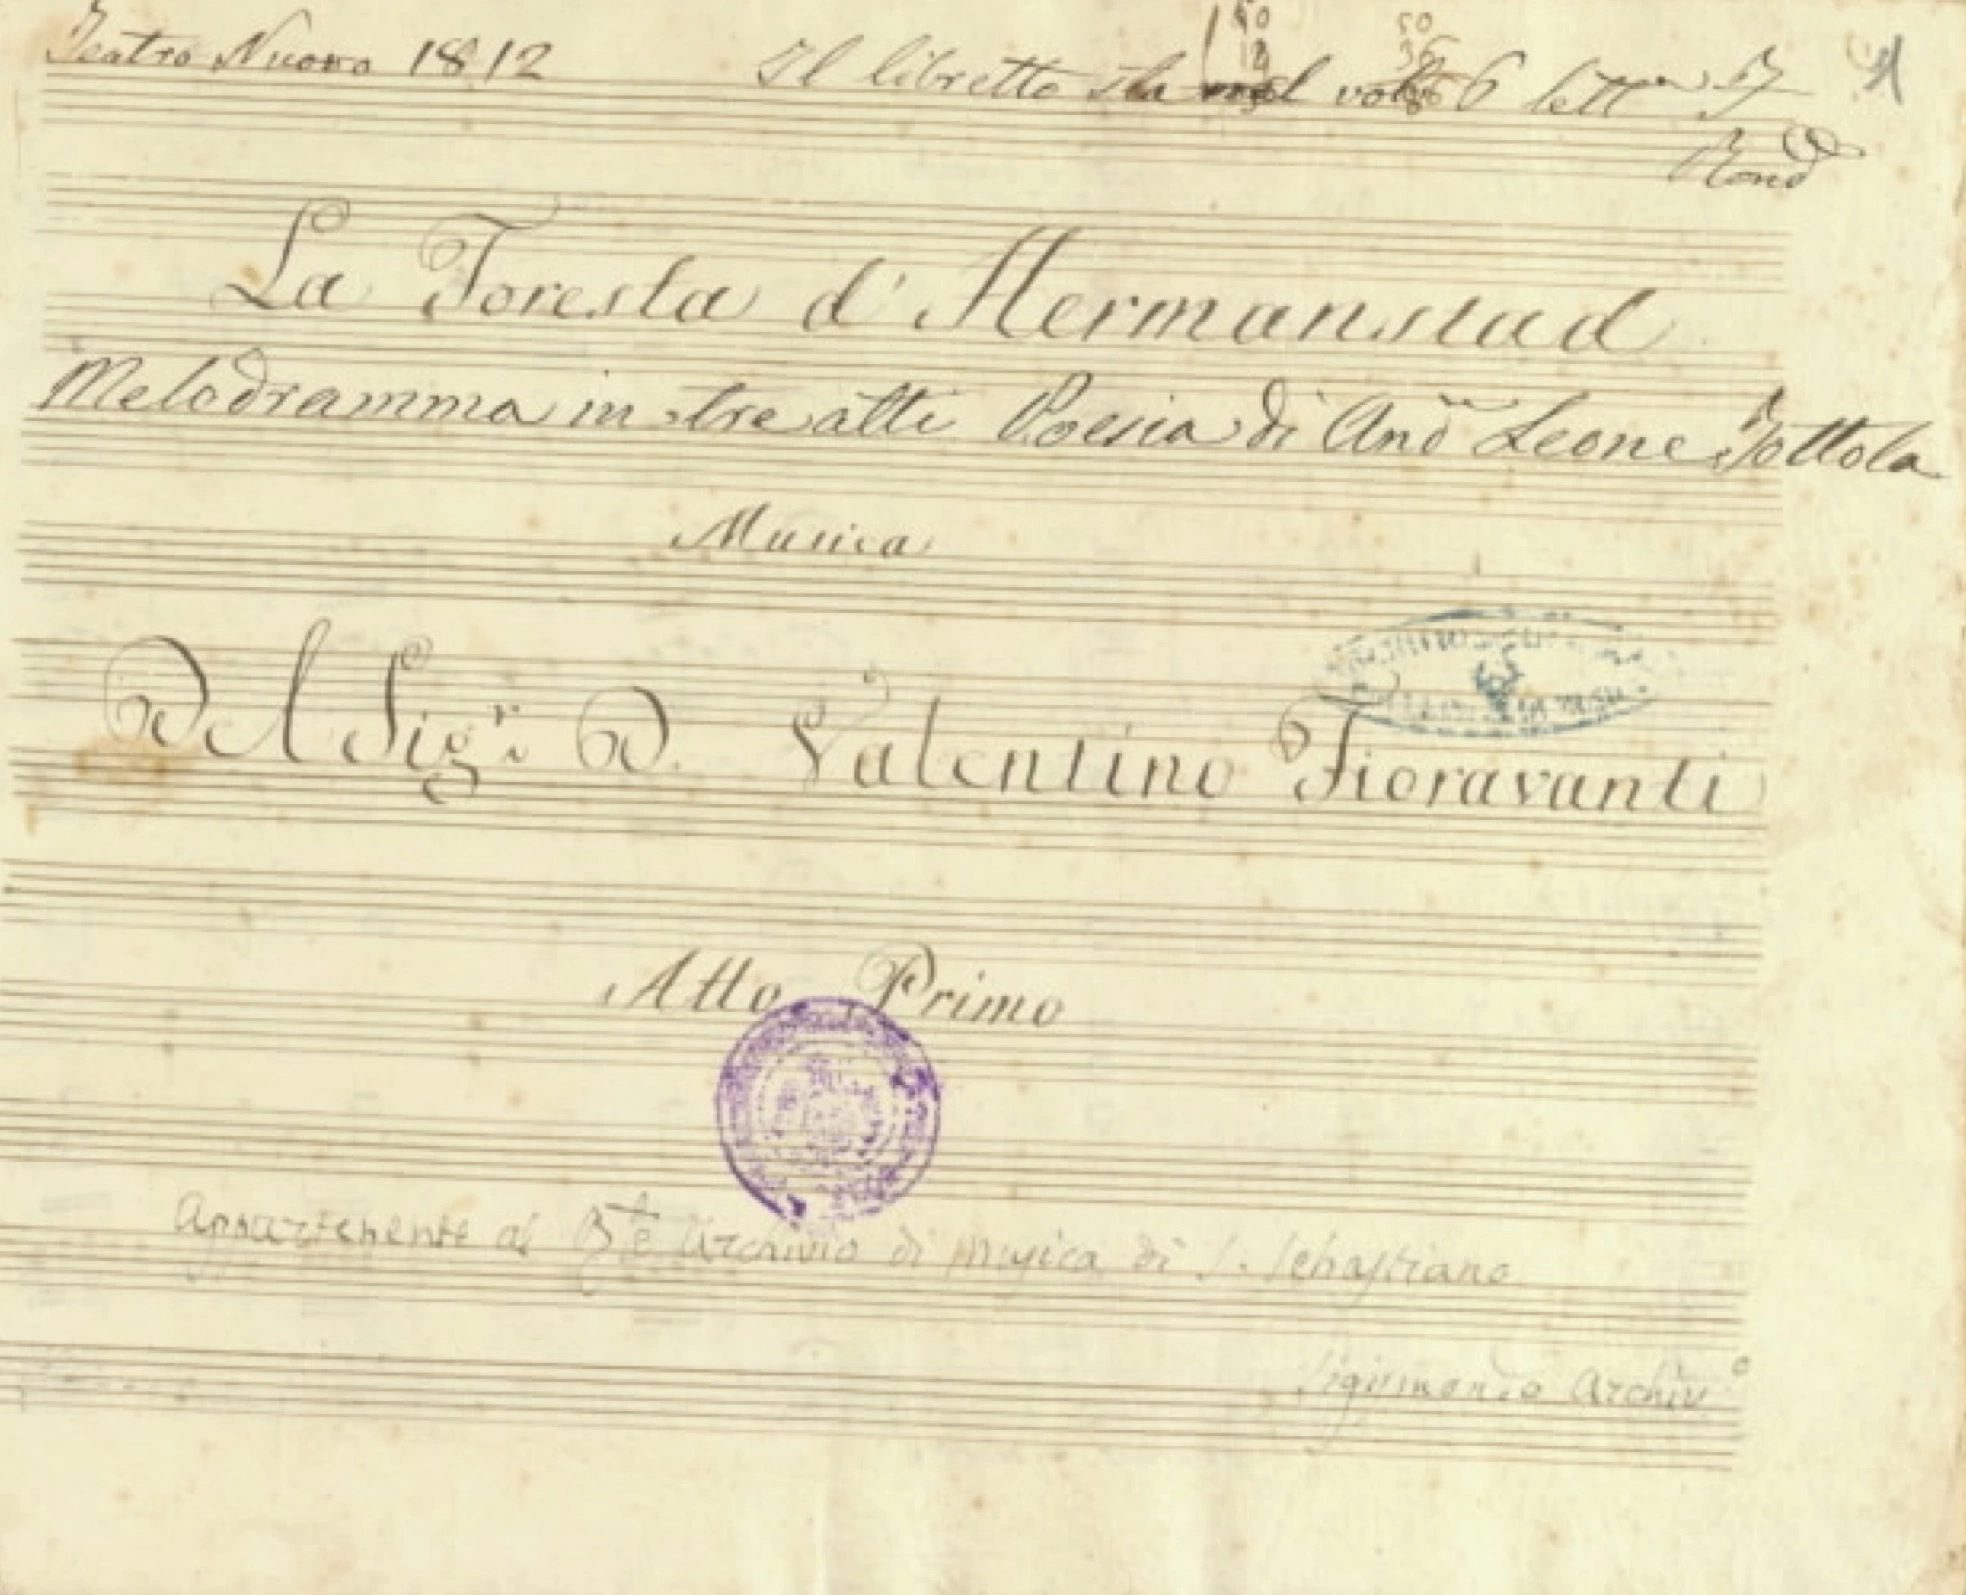 Teatro Nuovo 1812 Il libretto sta nel vol. 6 lett.
Rond
La Foresta d'Hermanstad
Melodramma in tre atti Poesia di And. Leone Tottola
Musica
Del Sig.r D. Valentino Fioravanti
Atto Primo
Appartenente al Archivio di musica di S. Sebastiano
Sigismondo Archiv.o